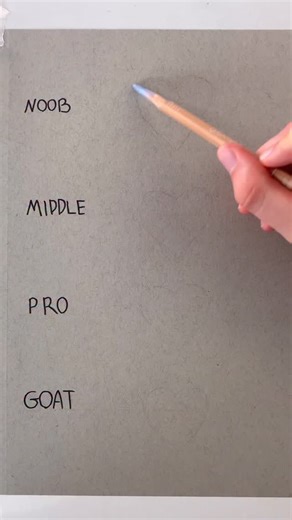 NOOB
MIDDLE
PRO
GOAT